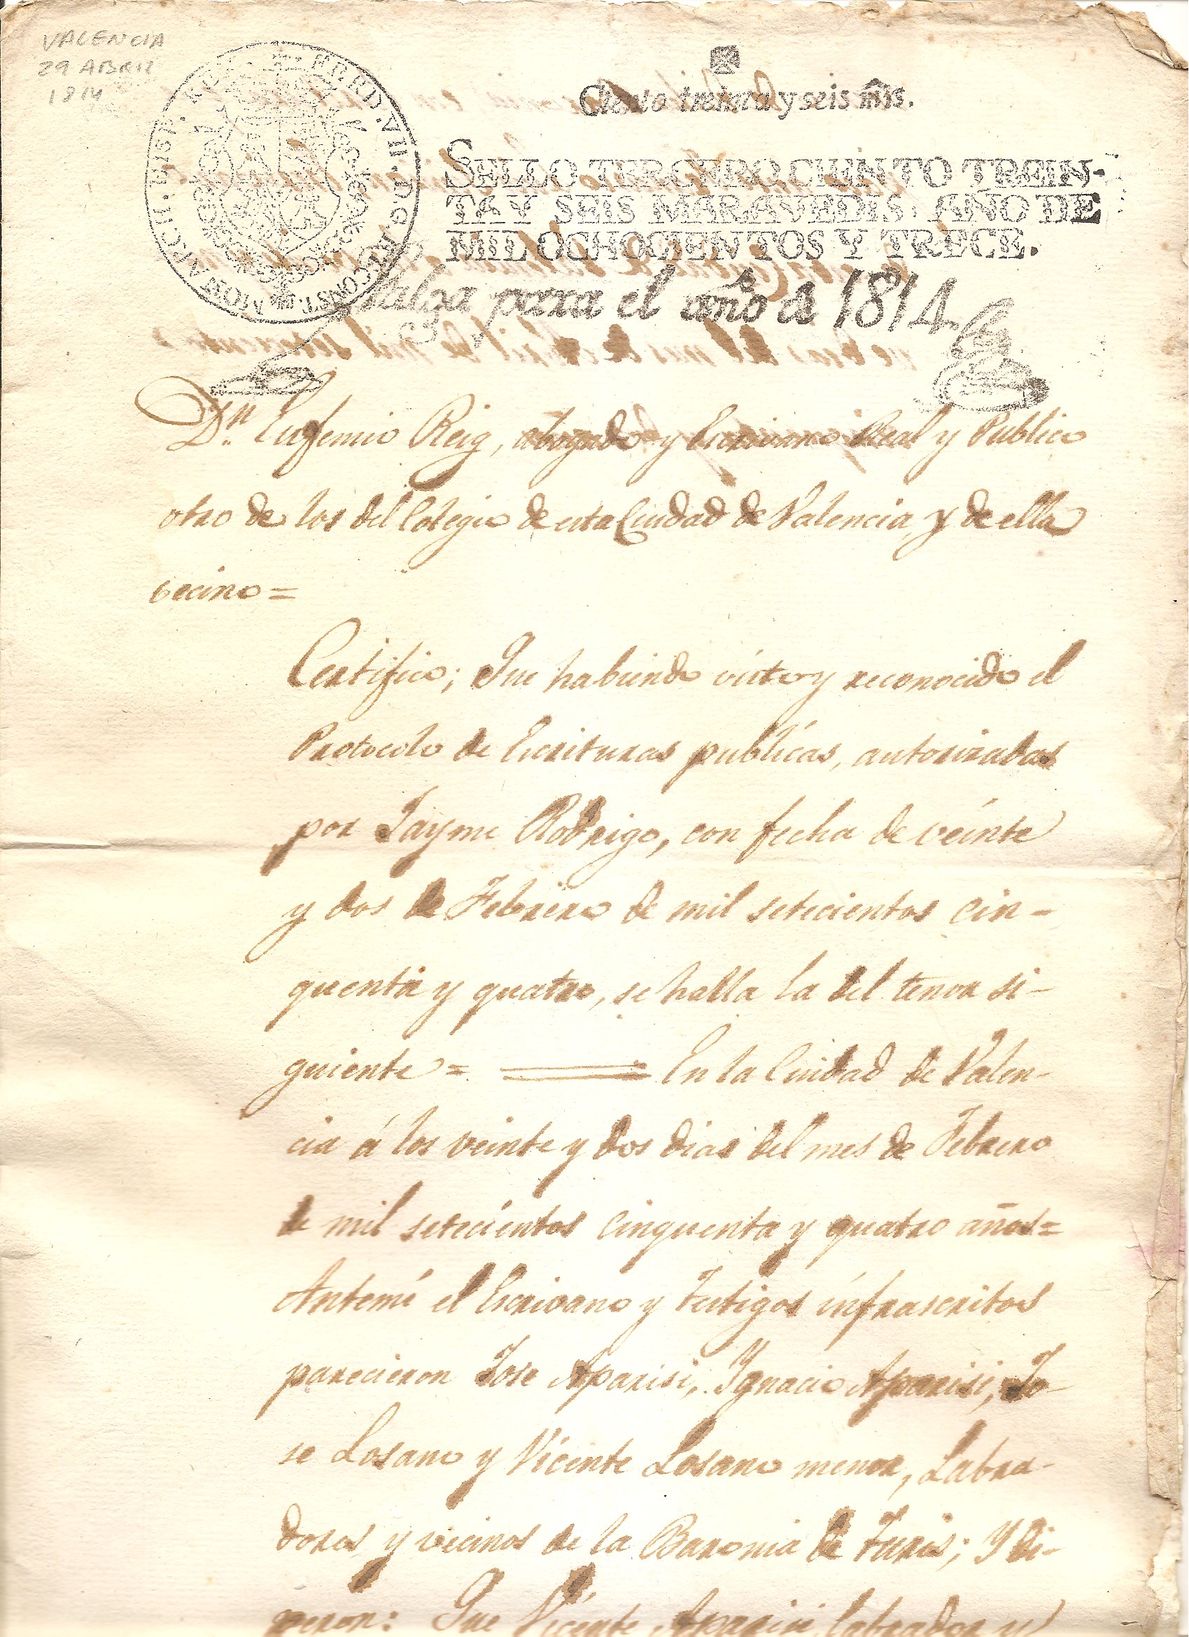 VALENCIA
29 ABRIL
1814
Ciento treinta y seis mrs.
SELLO TERCERO CIENTO TREIN-
TA Y SEIS MARAVEDIS, AÑO DE
MIL OCHOCIENTOS Y TRECE.
Valga para el año de 1814.
Dn. Eugenio Reig, abogado y Escrivano Real y Publico
otro de los del Colegio de esta Ciudad de Valencia y de ella
vecino=
Certifico; Que habiendo visto y reconocido el
Protocolo de Escrituras publicas, autorizadas
por Jayme Rodrigo, con fecha de veinte
y dos de Febrero de mil setecientos cin-
quenta y quatro, se halla la del tenor si-
guiente= En la Ciudad de Valen-
cia á los veinte y dos dias del mes de Febrero
de mil setecientos cinquenta y quatro años=
Antemí el Escrivano y Testigos infrascritos
parecieron Jose Aparisi, Ygnacio Aparisi, Jo-
se Losano y Vicente Losano menor, Labra-
dores y vecinos de la Baronia de Turis; Y di-
geron: Que Vicente Aparisi labrador y